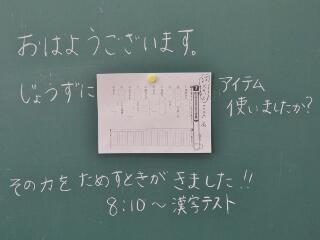 おはようございます。
じょうずに
アイテム
使いましたか?
その力を ためすときが きました!!
8:10～漢字テスト